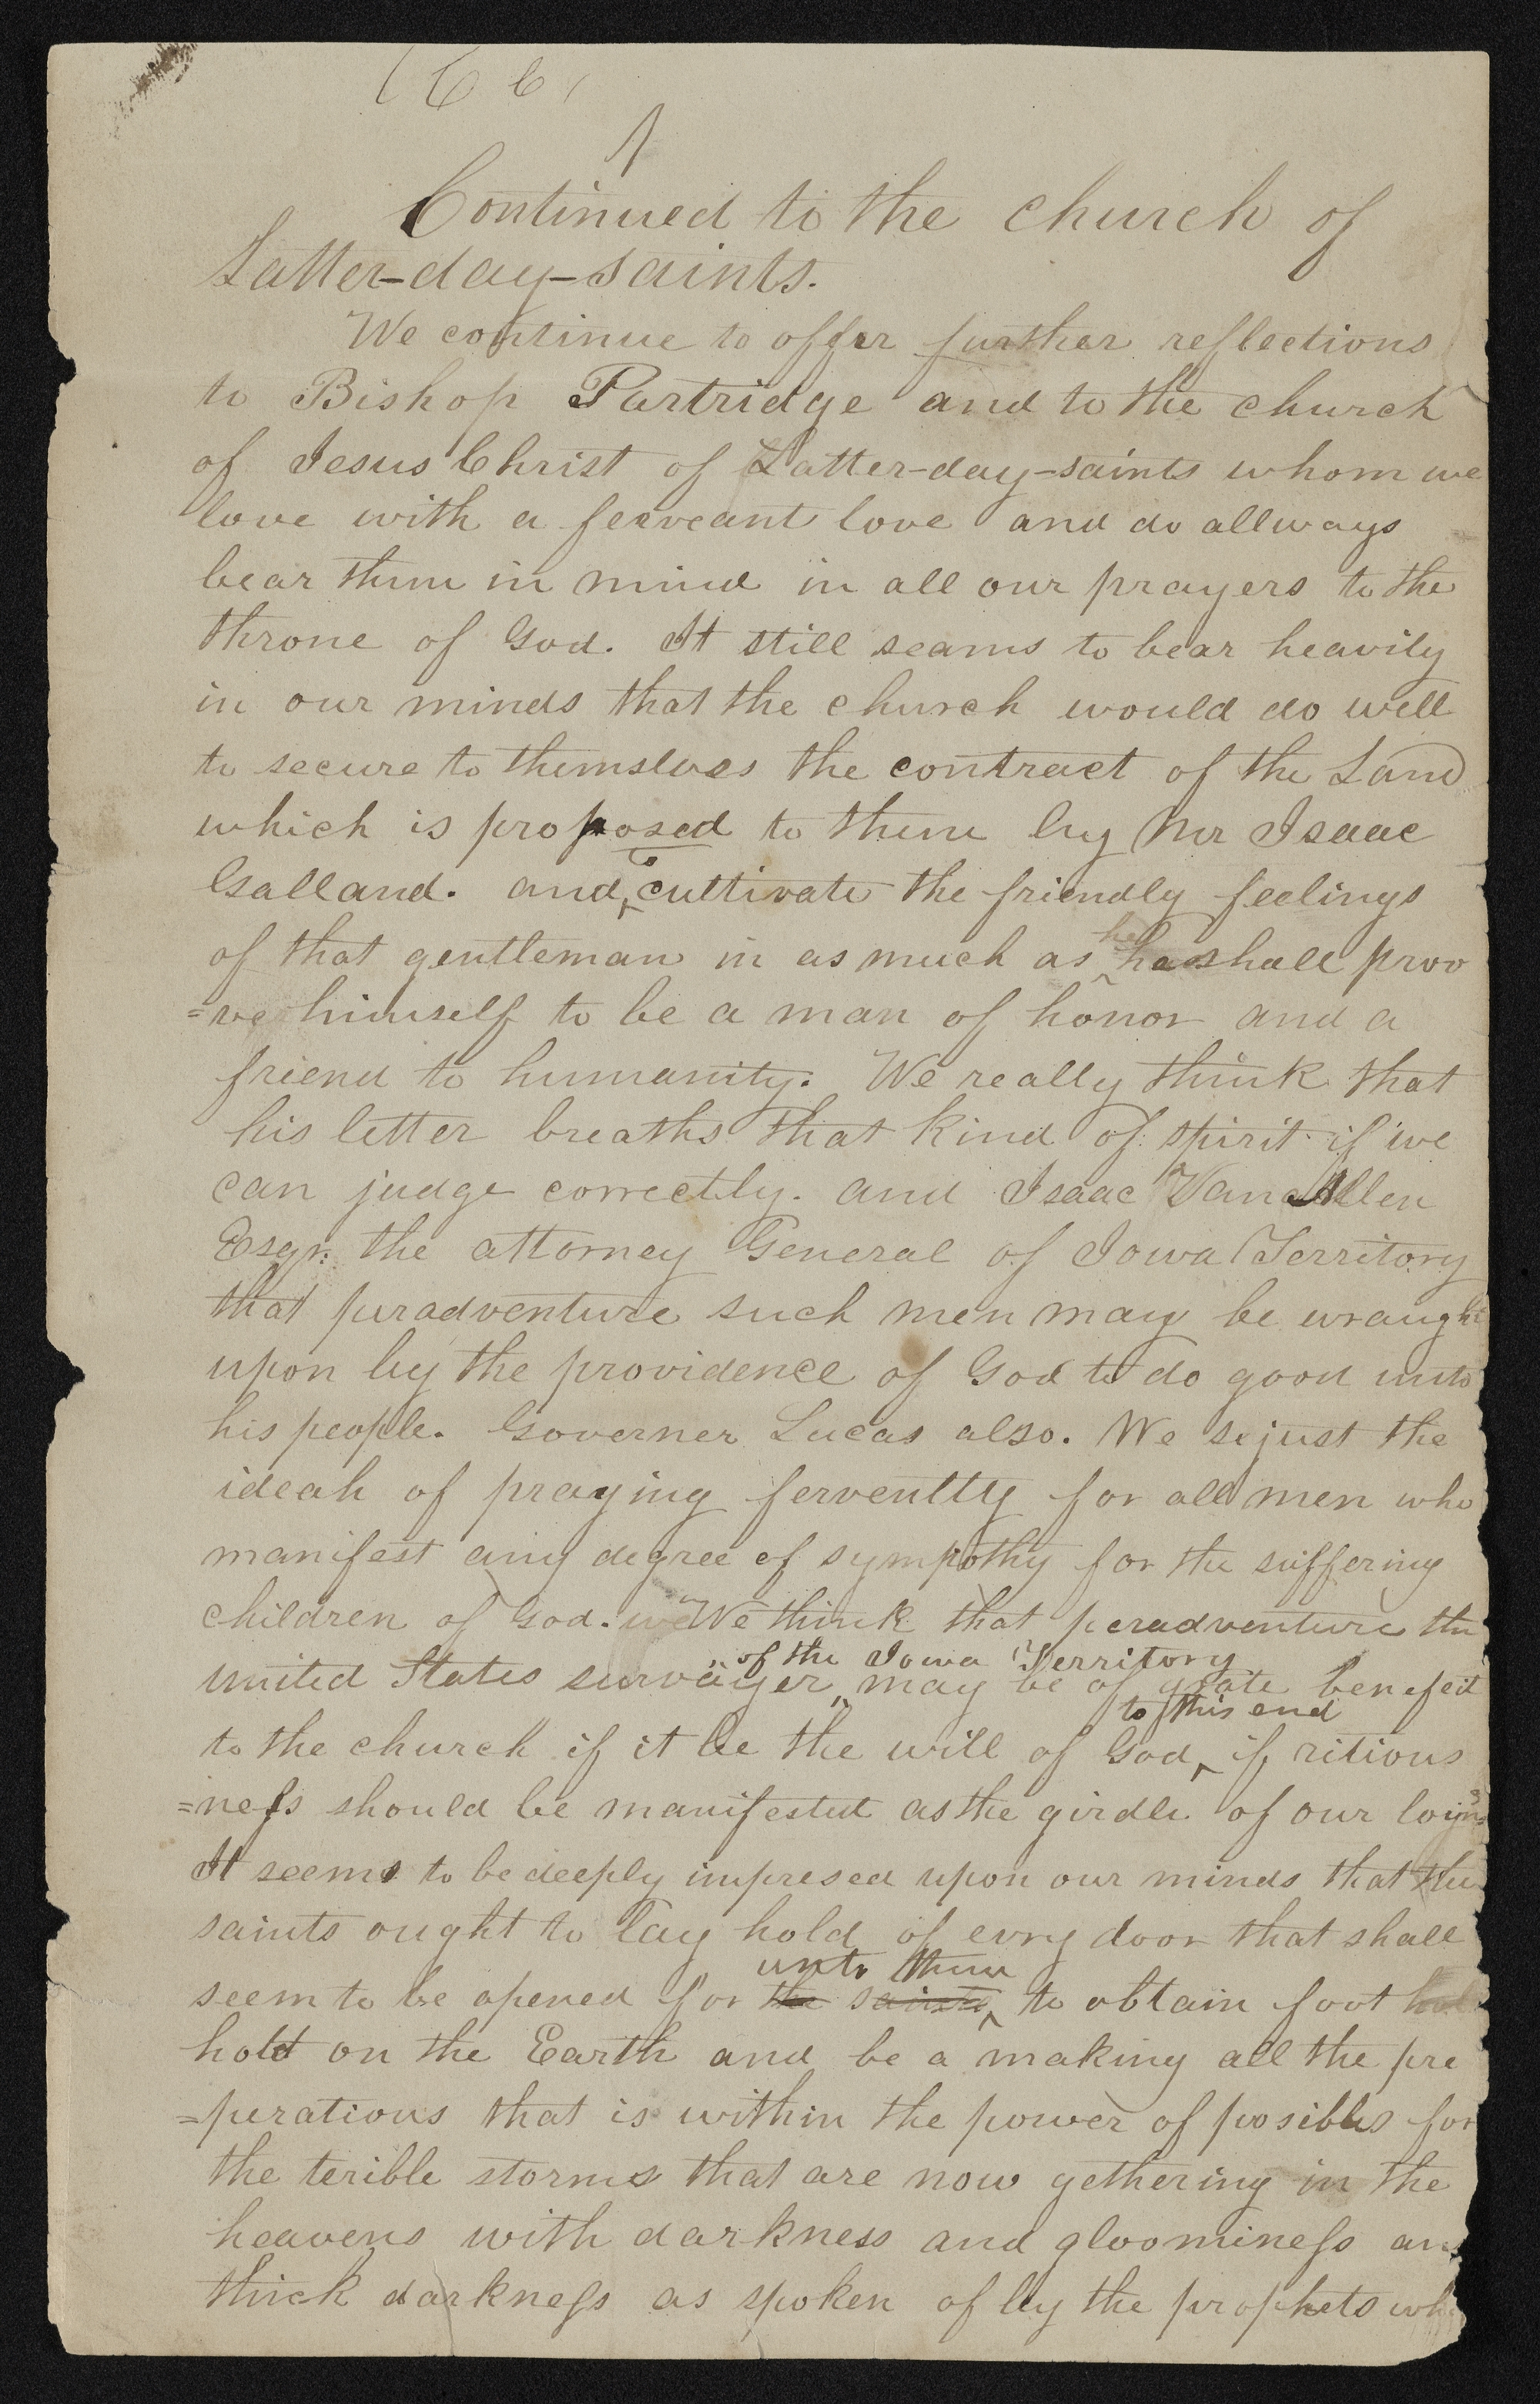 Continued to the church of
Latter-day-saints.
We continue to offer further reflections
to Bishop Partridge and to the church
of Jesus Christ of Latter-day-saints whom we
love with a ferveant love and do allways
bear them in mind in all our prayers to the
throne of God. It still seams to bear heavily
in our minds that the church would do well
to secure to themslves the contract of the Land
which is proposed to them by Mr Isaac
to
Galland. and cultivate the friendly feelings
he
of that gentleman in as much as shall proo
=ve himself to be a man of honor and a
friend to humanity. We really think that
his letter breaths that kind of spirit if we
can judge correctly. and Isaac Van Allen
Esqr. the attorney General of Iowa Territory
that peradventure such men may be wraught
upon by the providence of God to do good unto
his people. Governer Lucas also. We sejust the
ideah of praying ferventtly for all men who
manifest any degree of sympothy for the suffering
children of God. We think that peradventure the
of the Iowa Territory
united States survayer may be of grate benefeit
to this end
to the church if it be the will of God if ritious
=ness should be manifested as the girdle of our loyns
It seems to be deeply impresed upon our minds that the
saints ought to lay hold of evry door that shall
unto them
seem to be opened for the saints to obtain foot
hold on the Earth and be a making all the pre
=perations that is within the power of posibles for
the terible storms that are now gethering in the
heavens with darkness and gloominess and
thick darkness as spoken of by the prophets who